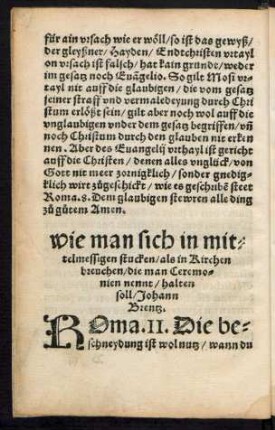 für ain vrsach wie er wöll/so ist das gewyß/
der gleyßner/Hayden/Endtchristen vrtayl
on vrsach ist falsch/hat kain grundt/weder
im gesatz noch Euāgelio. So gilt Mosi vr-
tayl nit auff die glaubigen/die vom gesatz
seiner straff vnd vermaledeyung durch Chri
stum erlößt sein/gilt aber noch wol auff die
vnglaubigen vnder dem gesatz begriffen/vñ
noch Christum durch den glauben nit erken
nen. Aber des Euangelij vrthayl ist gericht
auff die Christen/denen alles vnglück/von
Gott nit meer zorniglich/sonder gnedig-
klich wirt zůgeschickt/wie es geschribē steet
Roma.8. Dem glaubigen stewren alle ding
zů gůtem Amen.
wie man sich in mit-
telmessigen stucken/als in Kirchen
breuchen/die man Ceremo-
nien nennt/halten
soll/Johann
Brentz.
ROma.II. Die be-
schneydung ist wol nutz/wann du